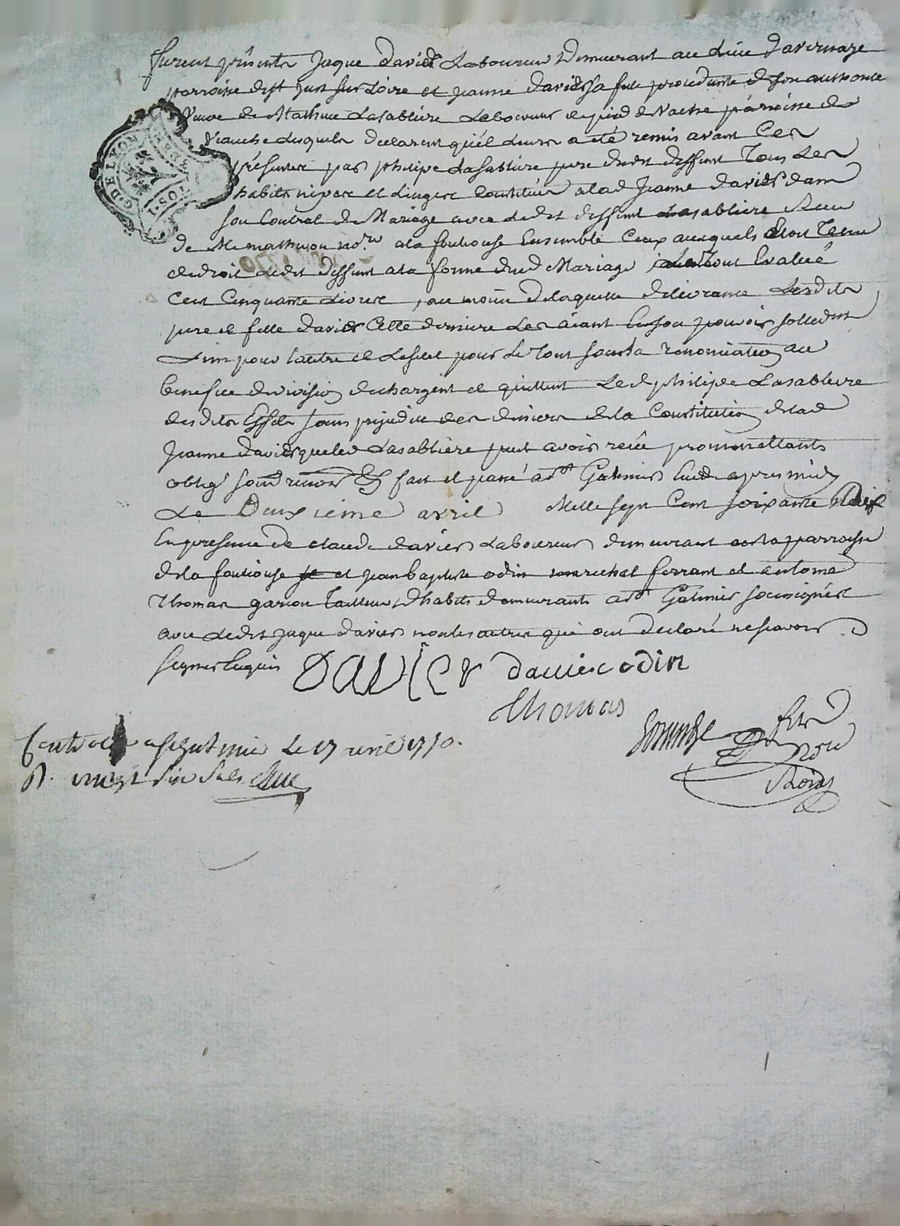 furent présents Jaque davier Laboureur demeurant au Lieu davernaze
parroisse de st just sur Loire et jeanne davier sa fille procedante de son authorité
veuve de Mathieu Lasabliere Laboureur de parroisse de
Lesquels declarent qu'il leurs a été remis avant Ces
présentes par philipe Lasabliere pere dudit deffunt Tous Les
habits nipes et Linges Constitués a lad Jeanne davier dans
son Contrat de Mariage avec Ledit deffunt Lasabliere Recu
de Me mathevon nore a la fouliouse Ensemble Ceux auxquels étoit Tenu
de droit Ledit deffunt a la forme dud Mariage Le Tout Evalué
Cent Cinquante Livres, au moien de laquelle délivrance Lesdits
pere et fille davier Cette derniere Les aiant En son pouvoir sollidairement
L'un pour l'autre et L'estet pour Le Tout sous La renonciation au
benefice de division dechargent et quittent Led philipe Lasabliere
desdits Effets sans prejudice des deniers de la Constitution de lad
Jeanne davier que led Lasabliere peut avoir reçu promettants
oblig soum renon & fait et passé a st Galmier Etude apres midy
Le Deuxième avril Mille Sept Cent soixante et dix
En presence de claude davier Laboureur demeurant parroisse
de la fouliouse et jean baptiste odin marechal ferrant et antoine
Thomas garçon Tailleur d'habits demeurants a st Galmier soussignés
avec Ledit jaque davier non les autres qui ont declaré ne savoir
signer Enquis DAVIER davier odin
Thomas
Controlé a st Galmier Le 17 avril 1770.
R. vingt six sols
G. DE LYON